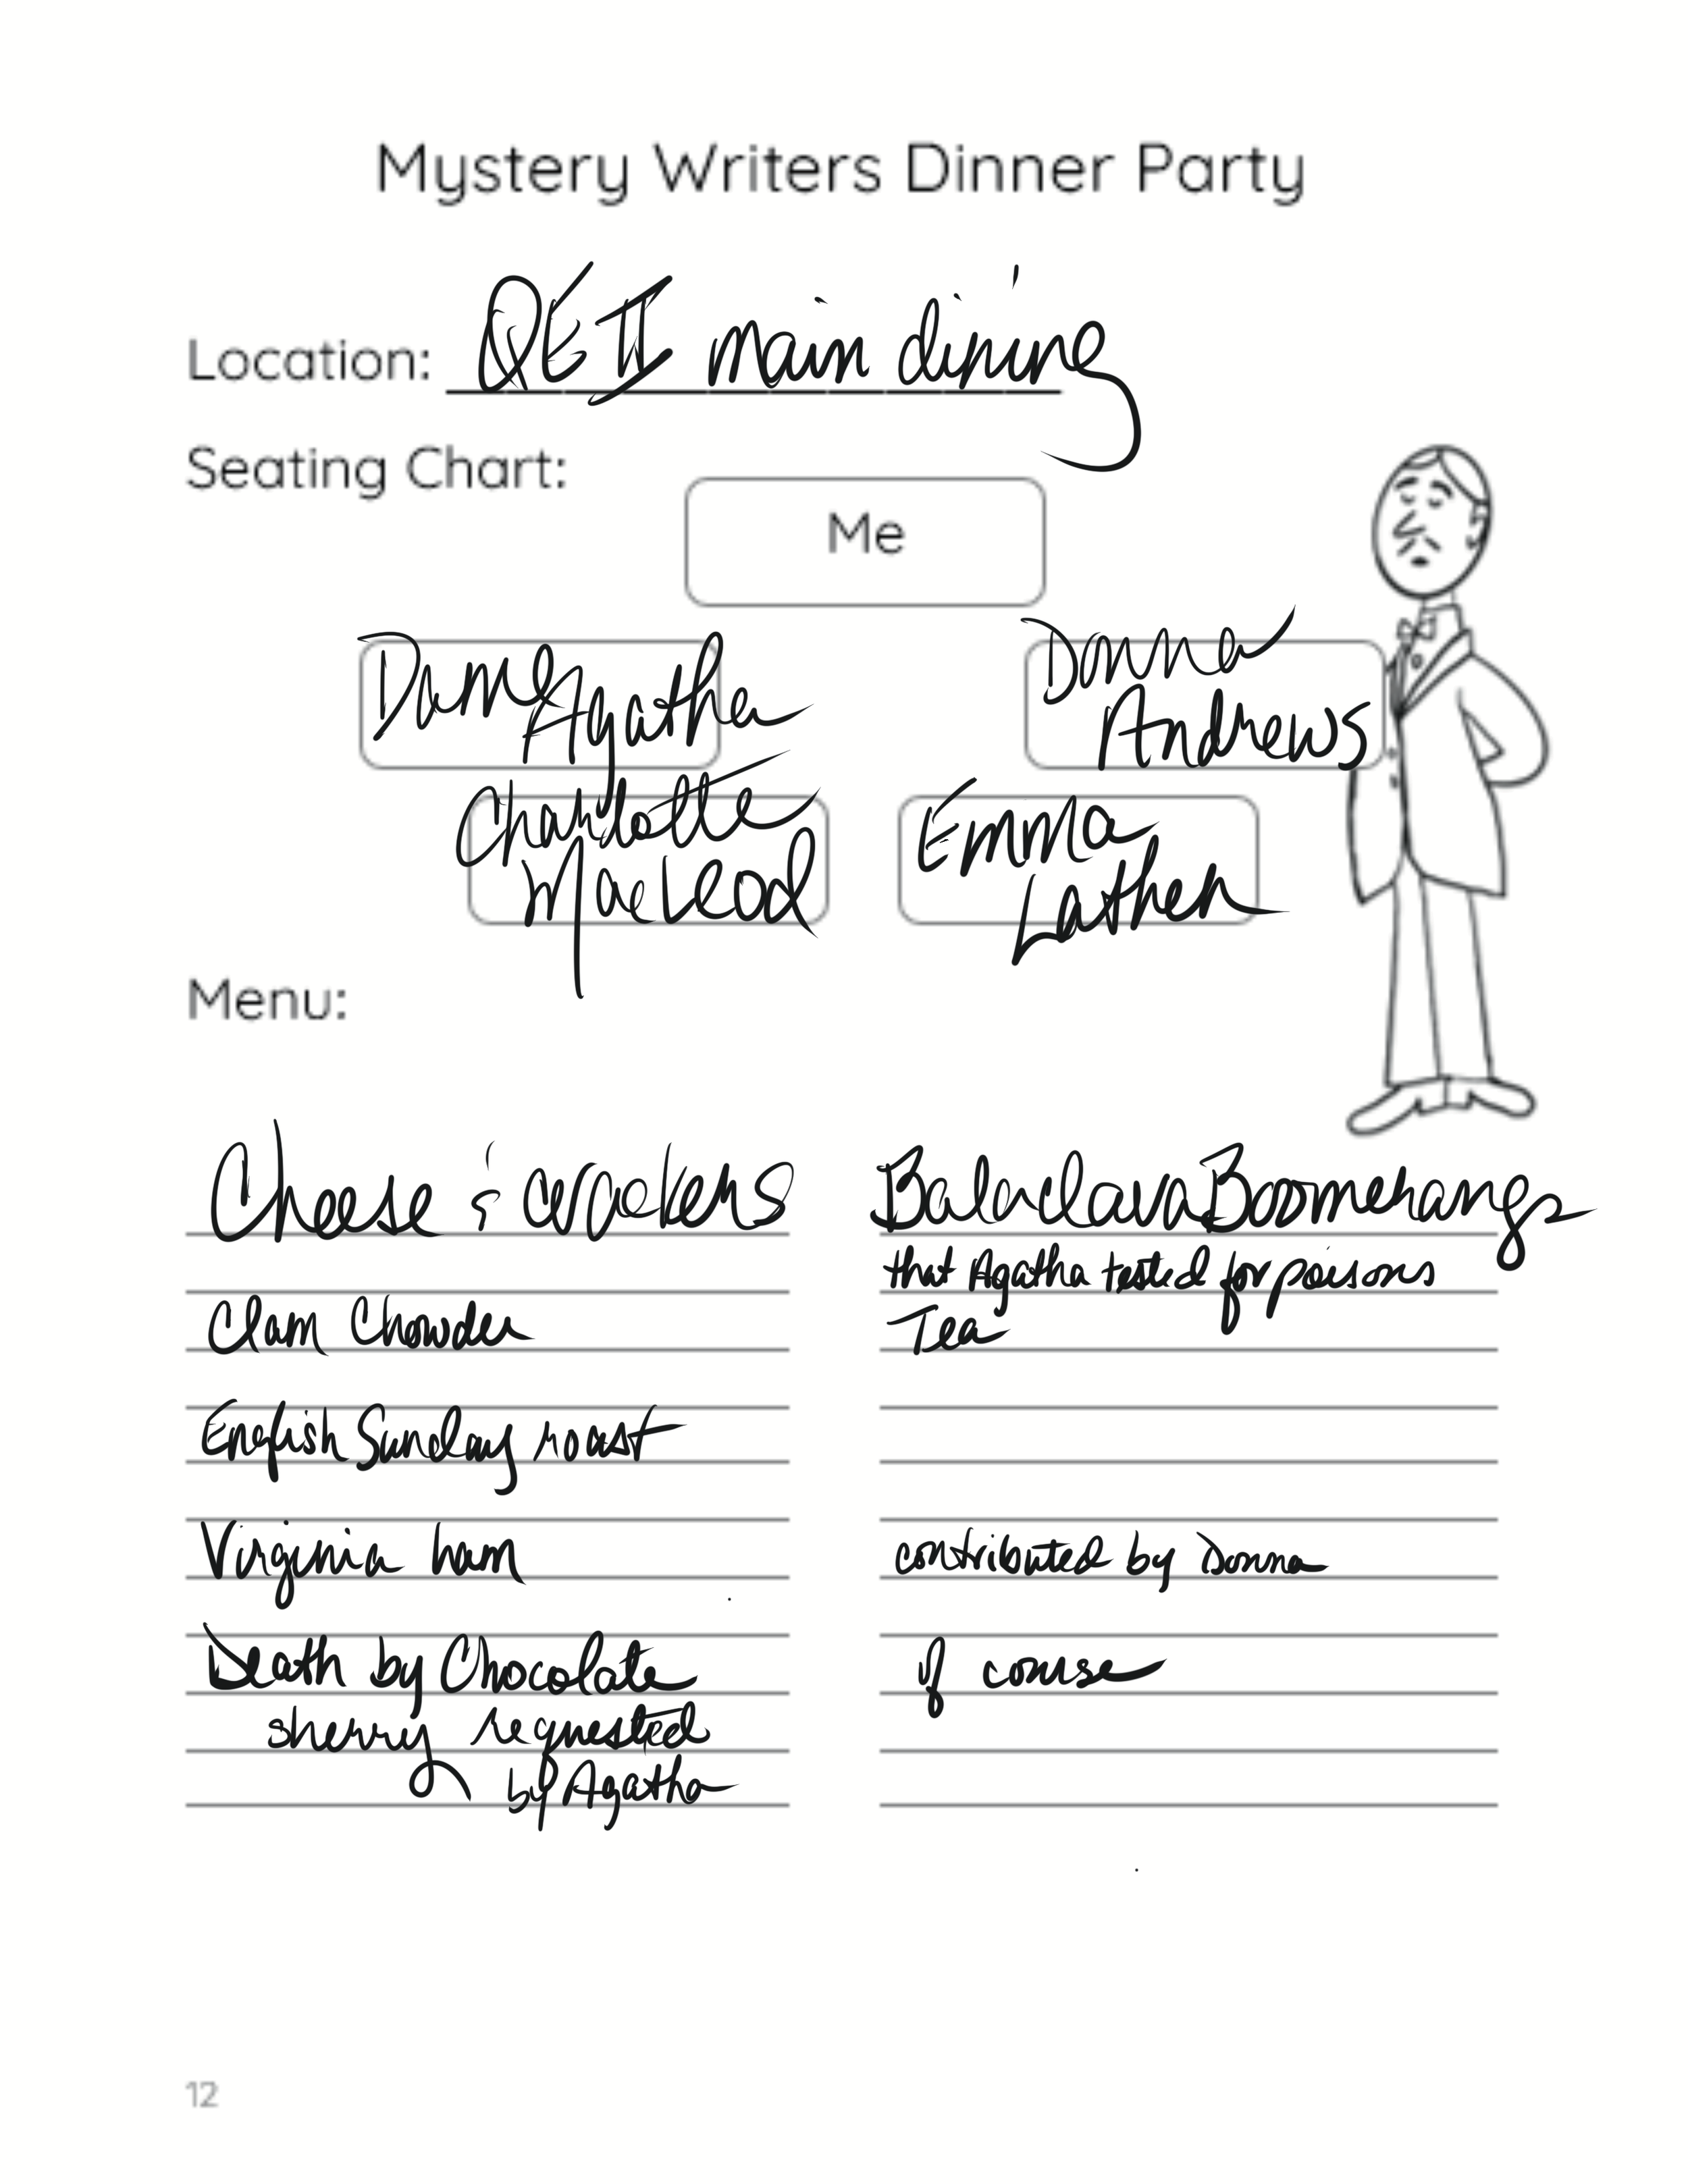 Mystery Writers Dinner Party
Location: QE II main dining
Seating Chart:
Me
Dame Agatha
Donna Andrews
Charlotte MacLeod
Emma Lathen
Menu:
Cheese & crackers
Clam Chowder
English Sunday roast
Virginia ham
Death by Chocolate
sherry requested
by Agatha
Balaclava Boomerangs
that Agatha tested for poisons
Tea
contributed by Donna
of course
12